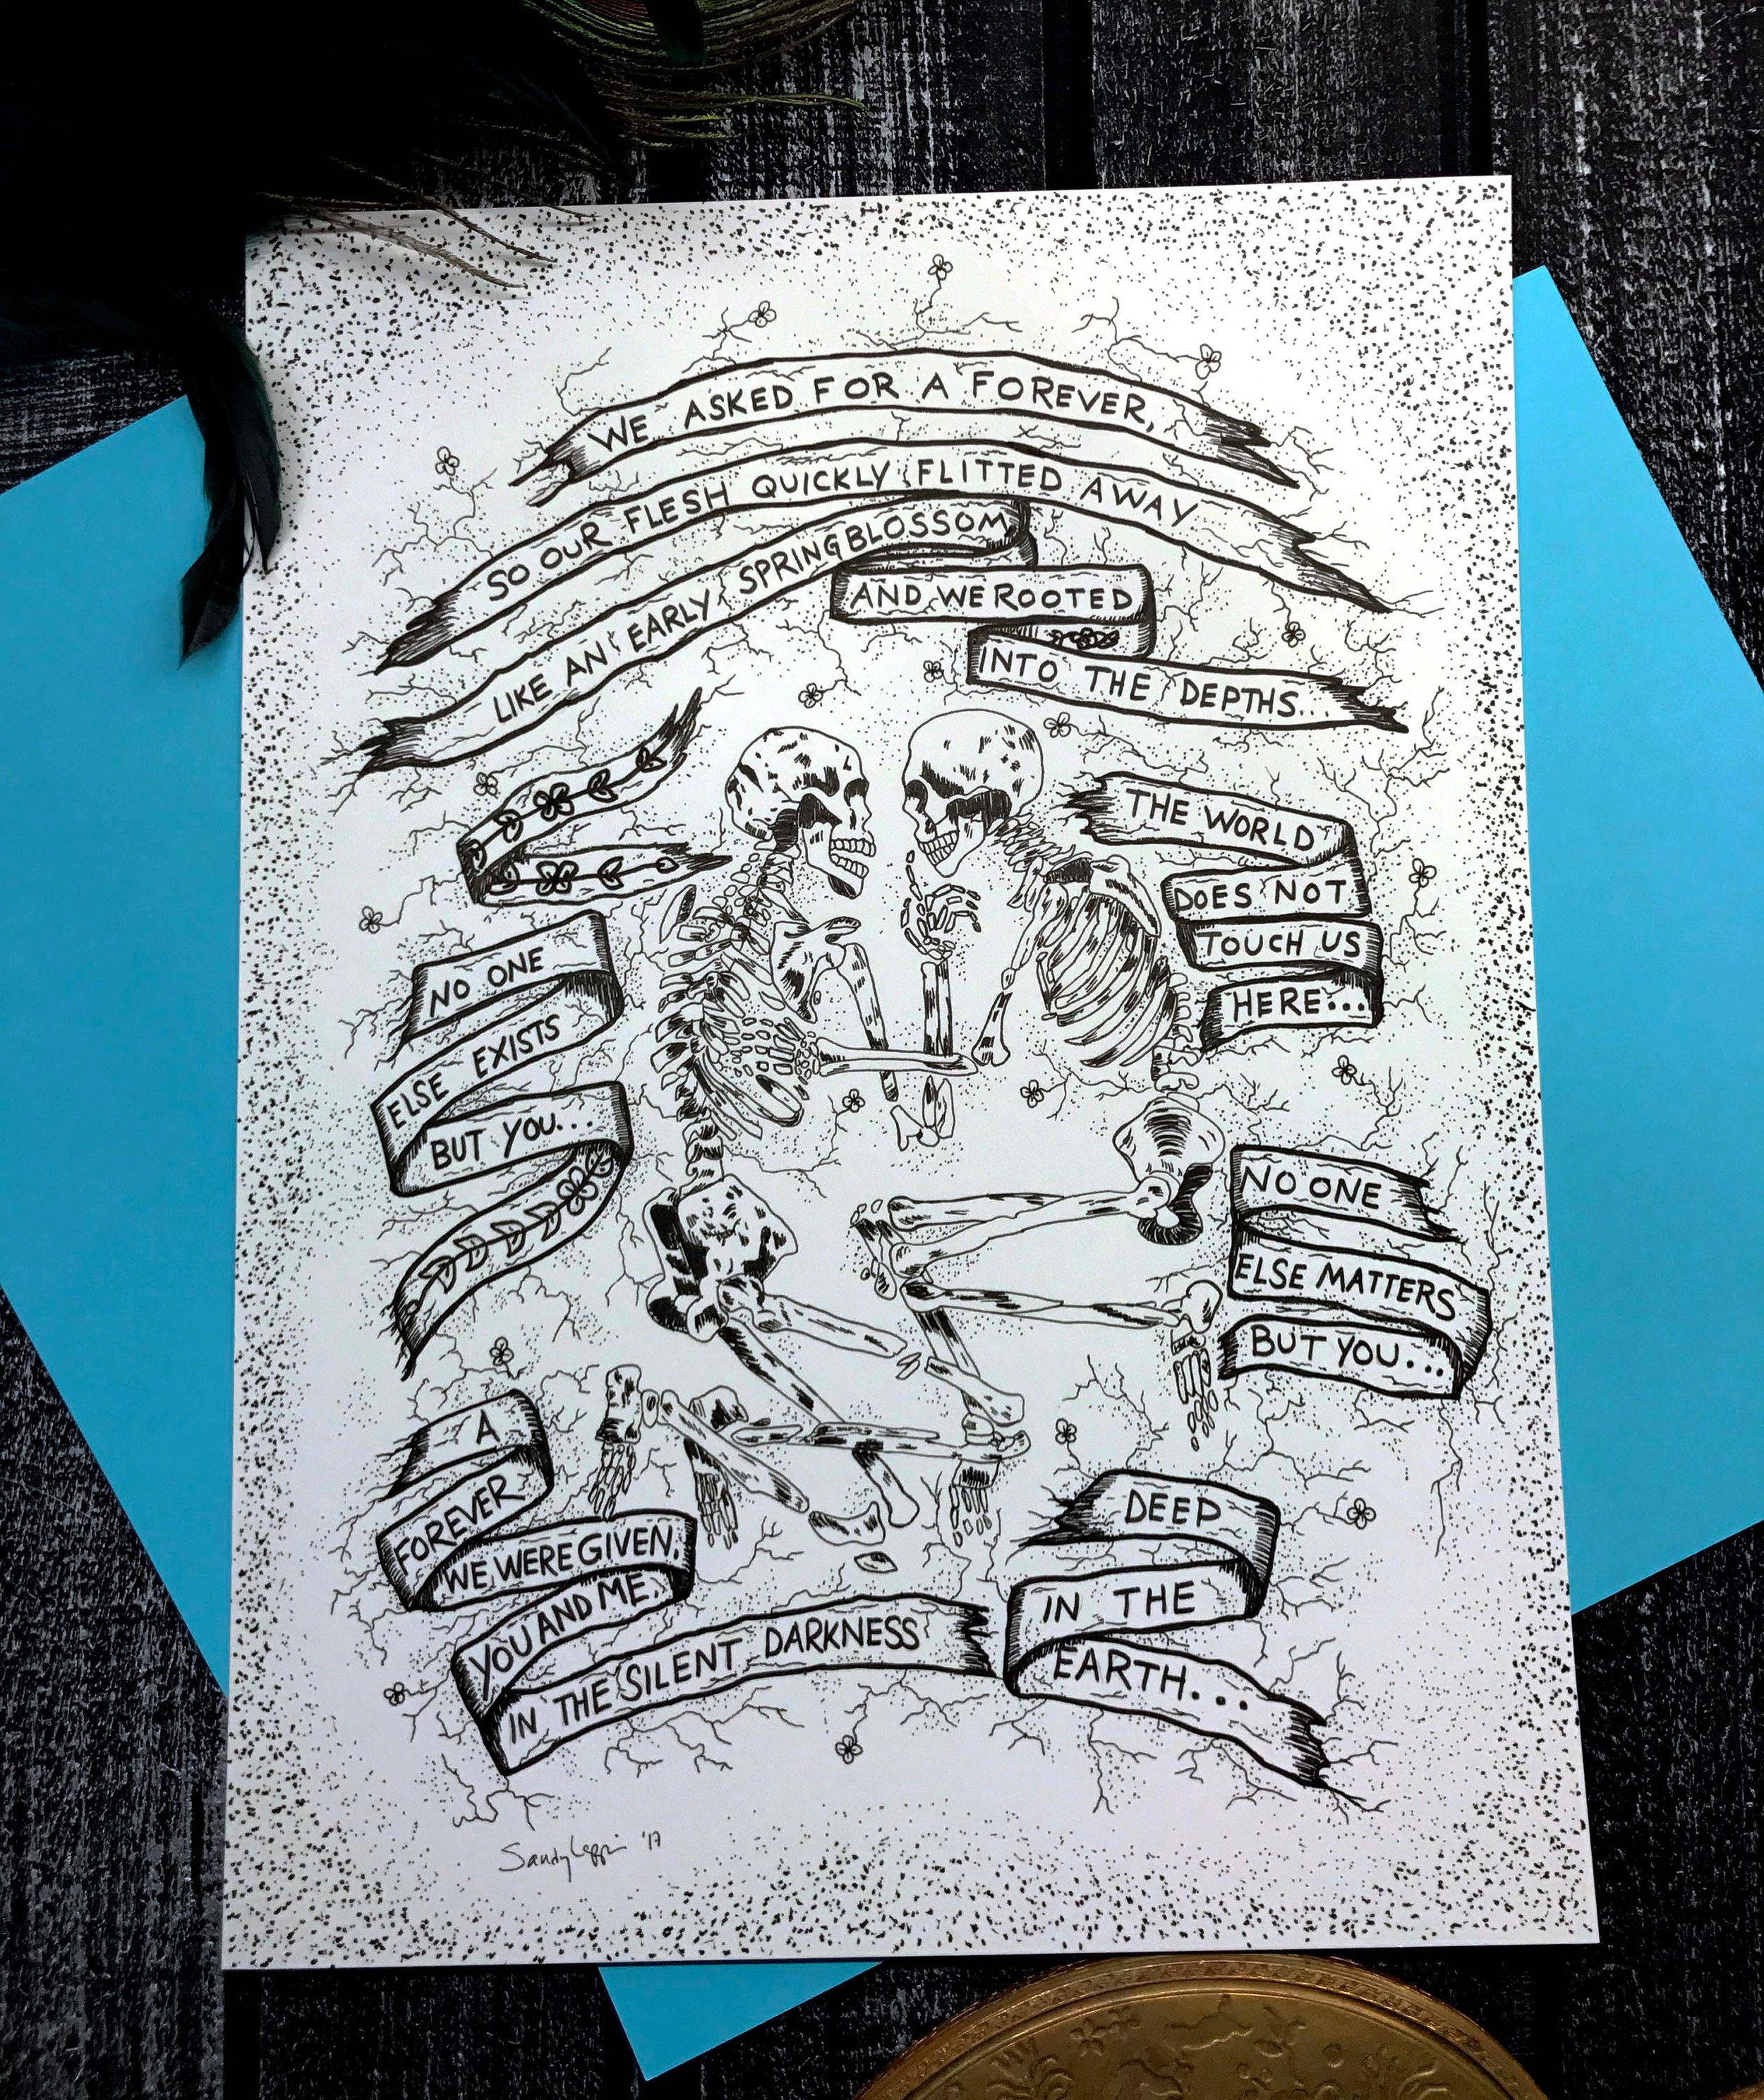 WE ASKED FOR A FOREVER,
SO OUR FLESH QUICKLY FLITTED AWAY
LIKE AN EARLY SPRING BLOSSOM
AND WE ROOTED
INTO THE DEPTHS...
THE WORLD
DOES NOT
TOUCH US
HERE...
NO ONE
ELSE EXISTS
BUT YOU...
NO ONE
ELSE MATTERS
BUT YOU...
A
FOREVER
WE WERE GIVEN,
YOU AND ME,
IN THE SILENT DARKNESS
DEEP
IN THE
EARTH...
Sandy '17